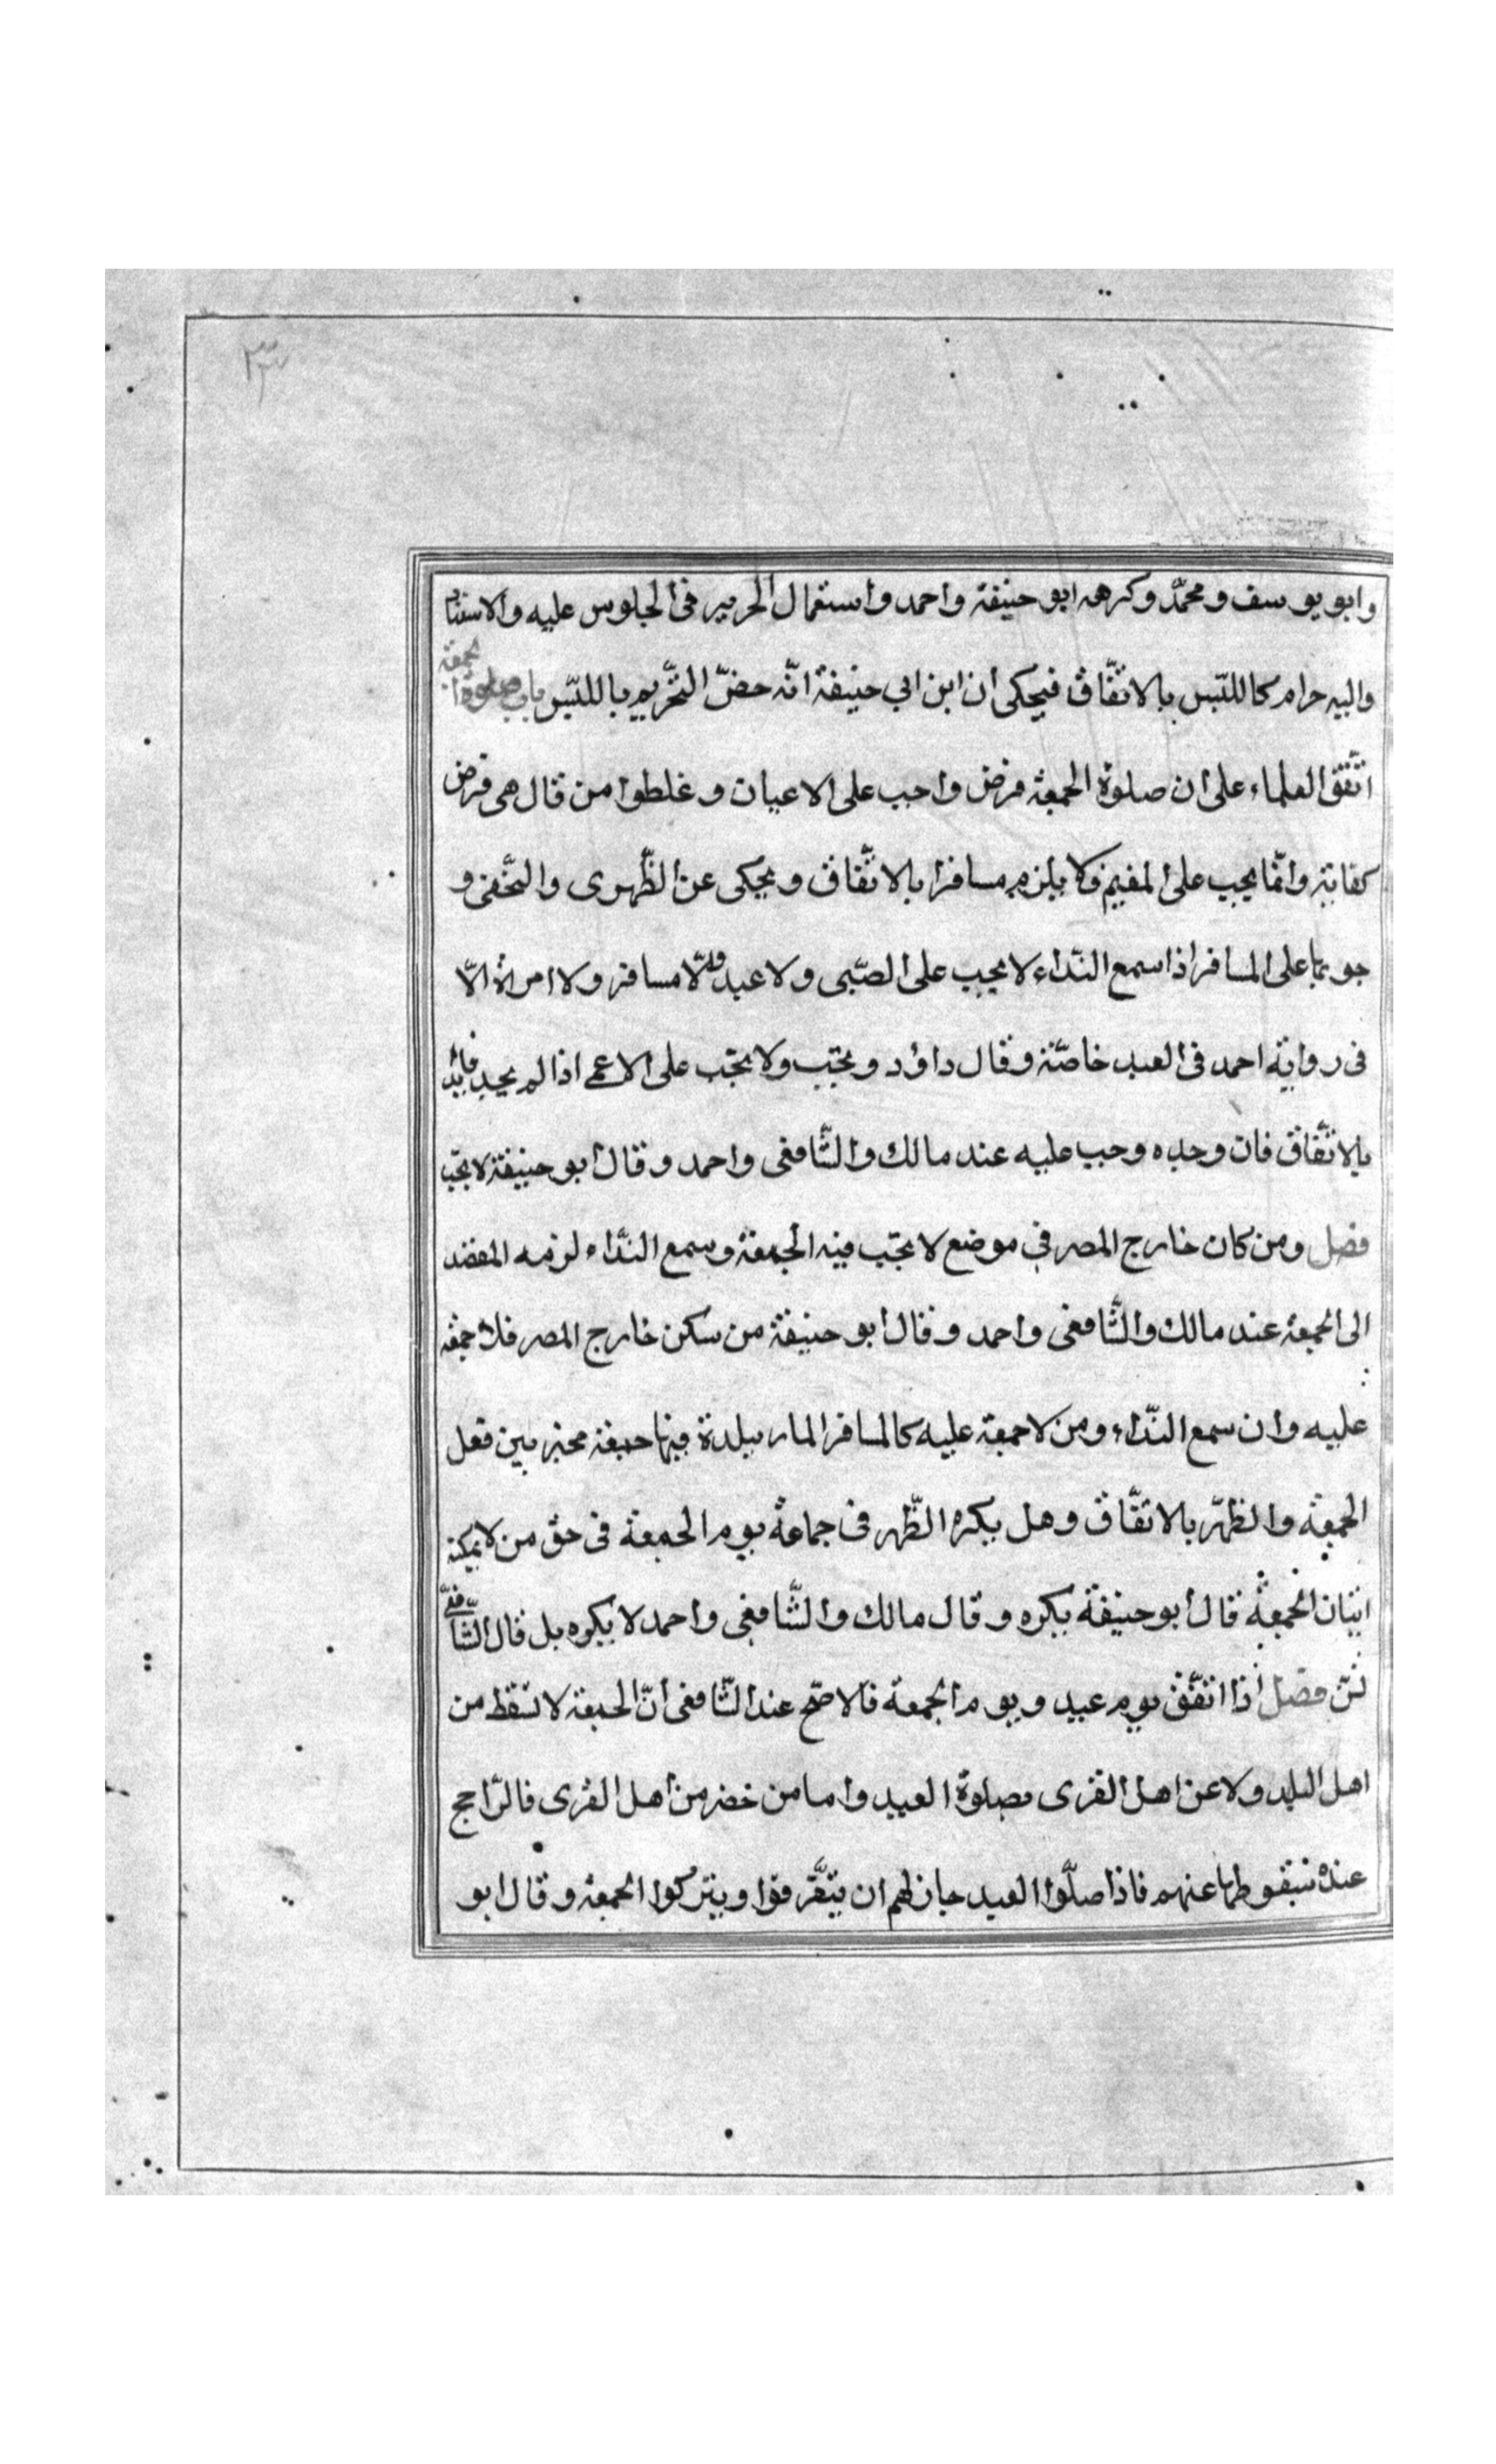 ٣٣
وابو يوسف ومحمّد وكرهه ابو حنيفة واحمد واستعمال الحرير فى الجلوس عليه والاستناد
واليه حرام كاللبس بالاتّفاق فيحكى ان ابن ابى حنيفة انّه خصّ التّحريم باللبس باب صلوة الجمعة
اتّفق العلماء على ان صلوة الجمعة فرض واجب على الاعيان وغلطوا من قال هى فرض
كفاية وانّما يجب على المقيم ولا يلزم مسافرا بالاتّفاق ويحكى عن الظّهرى والنّخفى و
جوبها على المسافر اذا سمع النّداء لا يجب على الصّبى ولا عبد ولا مسافر ولا امراة الّا
فى رواية احمد فى العبد خاصّة وقال داؤد وتجب ولا تجب على الاعمى اذا لم يجد قائد
بالاتّفاق فان وجده وجب عليه عند مالك والشّافعى واحمد وقال ابو حنيفة لا تجب
فصل ومن كان خارج المصر فى موضع لا تجب فيه الجمعة وسمع النّداء لزمه المقصد
الى الجمعة عند مالك والشّافعى واحمد وقال ابو حنيفة من سكن خارج المصر فلا جمعة
عليه وان سمع النّداء ومن لا جمعة عليه كالمسافر المار ببلدة فيها جمعة مخير بين فعل
الجمعة والظهر بالاتّفاق وهل يكره الظّهر فى جماعة يوم الجمعة فى حق من لا يمكنه
اتيان الجمعة قال ابو حنيفة يكره وقال مالك والشّافعى واحمد لا يكره بل قال الشّافعى
تسنّ فصل اذا اتّفق يوم عيد ويوم الجمعة فالاصّح عند الشّافعى انّ الجمعة لا تسقط من
اهل البلد ولا عن اهل القرى بصلوة العيد واما من حضر من اهل القرى فالرّاجح
عنده سقوطها عنهم فاذا صلّوا العيد جاز لهم ان يتفّرقوا ويتركوا الجمعة وقال ابو